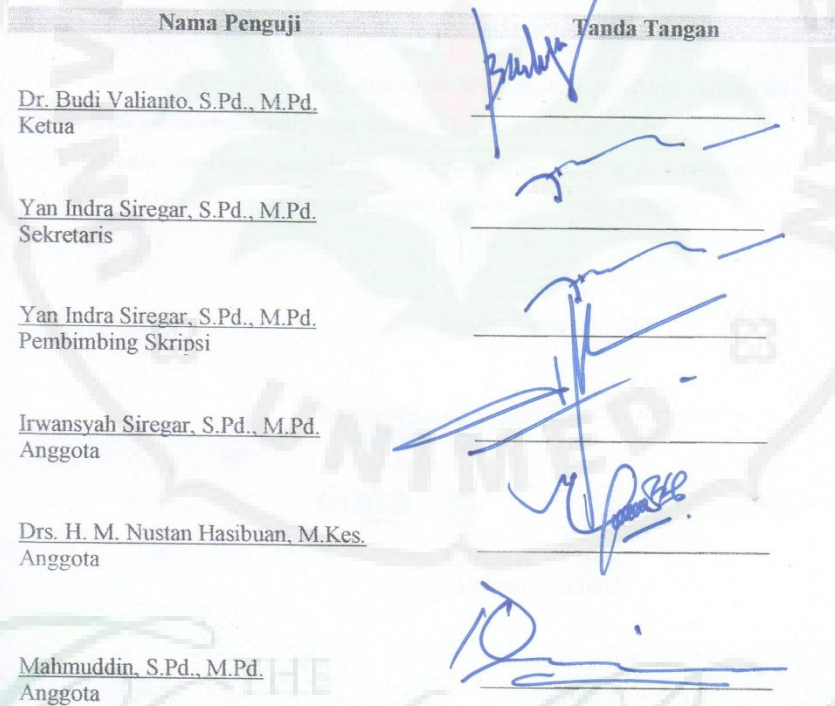 Nama Penguji Tanda Tangan
Dr. Budi Valianto, S.Pd., M.Pd.
Ketua
Yan Indra Siregar, S.Pd., M.Pd.
Sekretaris
Yan Indra Siregar, S.Pd., M.Pd.
Pembimbing Skripsi
Irwansyah Siregar, S.Pd., M.Pd.
Anggota
UNIMED
Drs. H. M. Nustan Hasibuan, M.Kes.
Anggota
Mahmuddin, S.Pd., M.Pd.
Anggota
THE